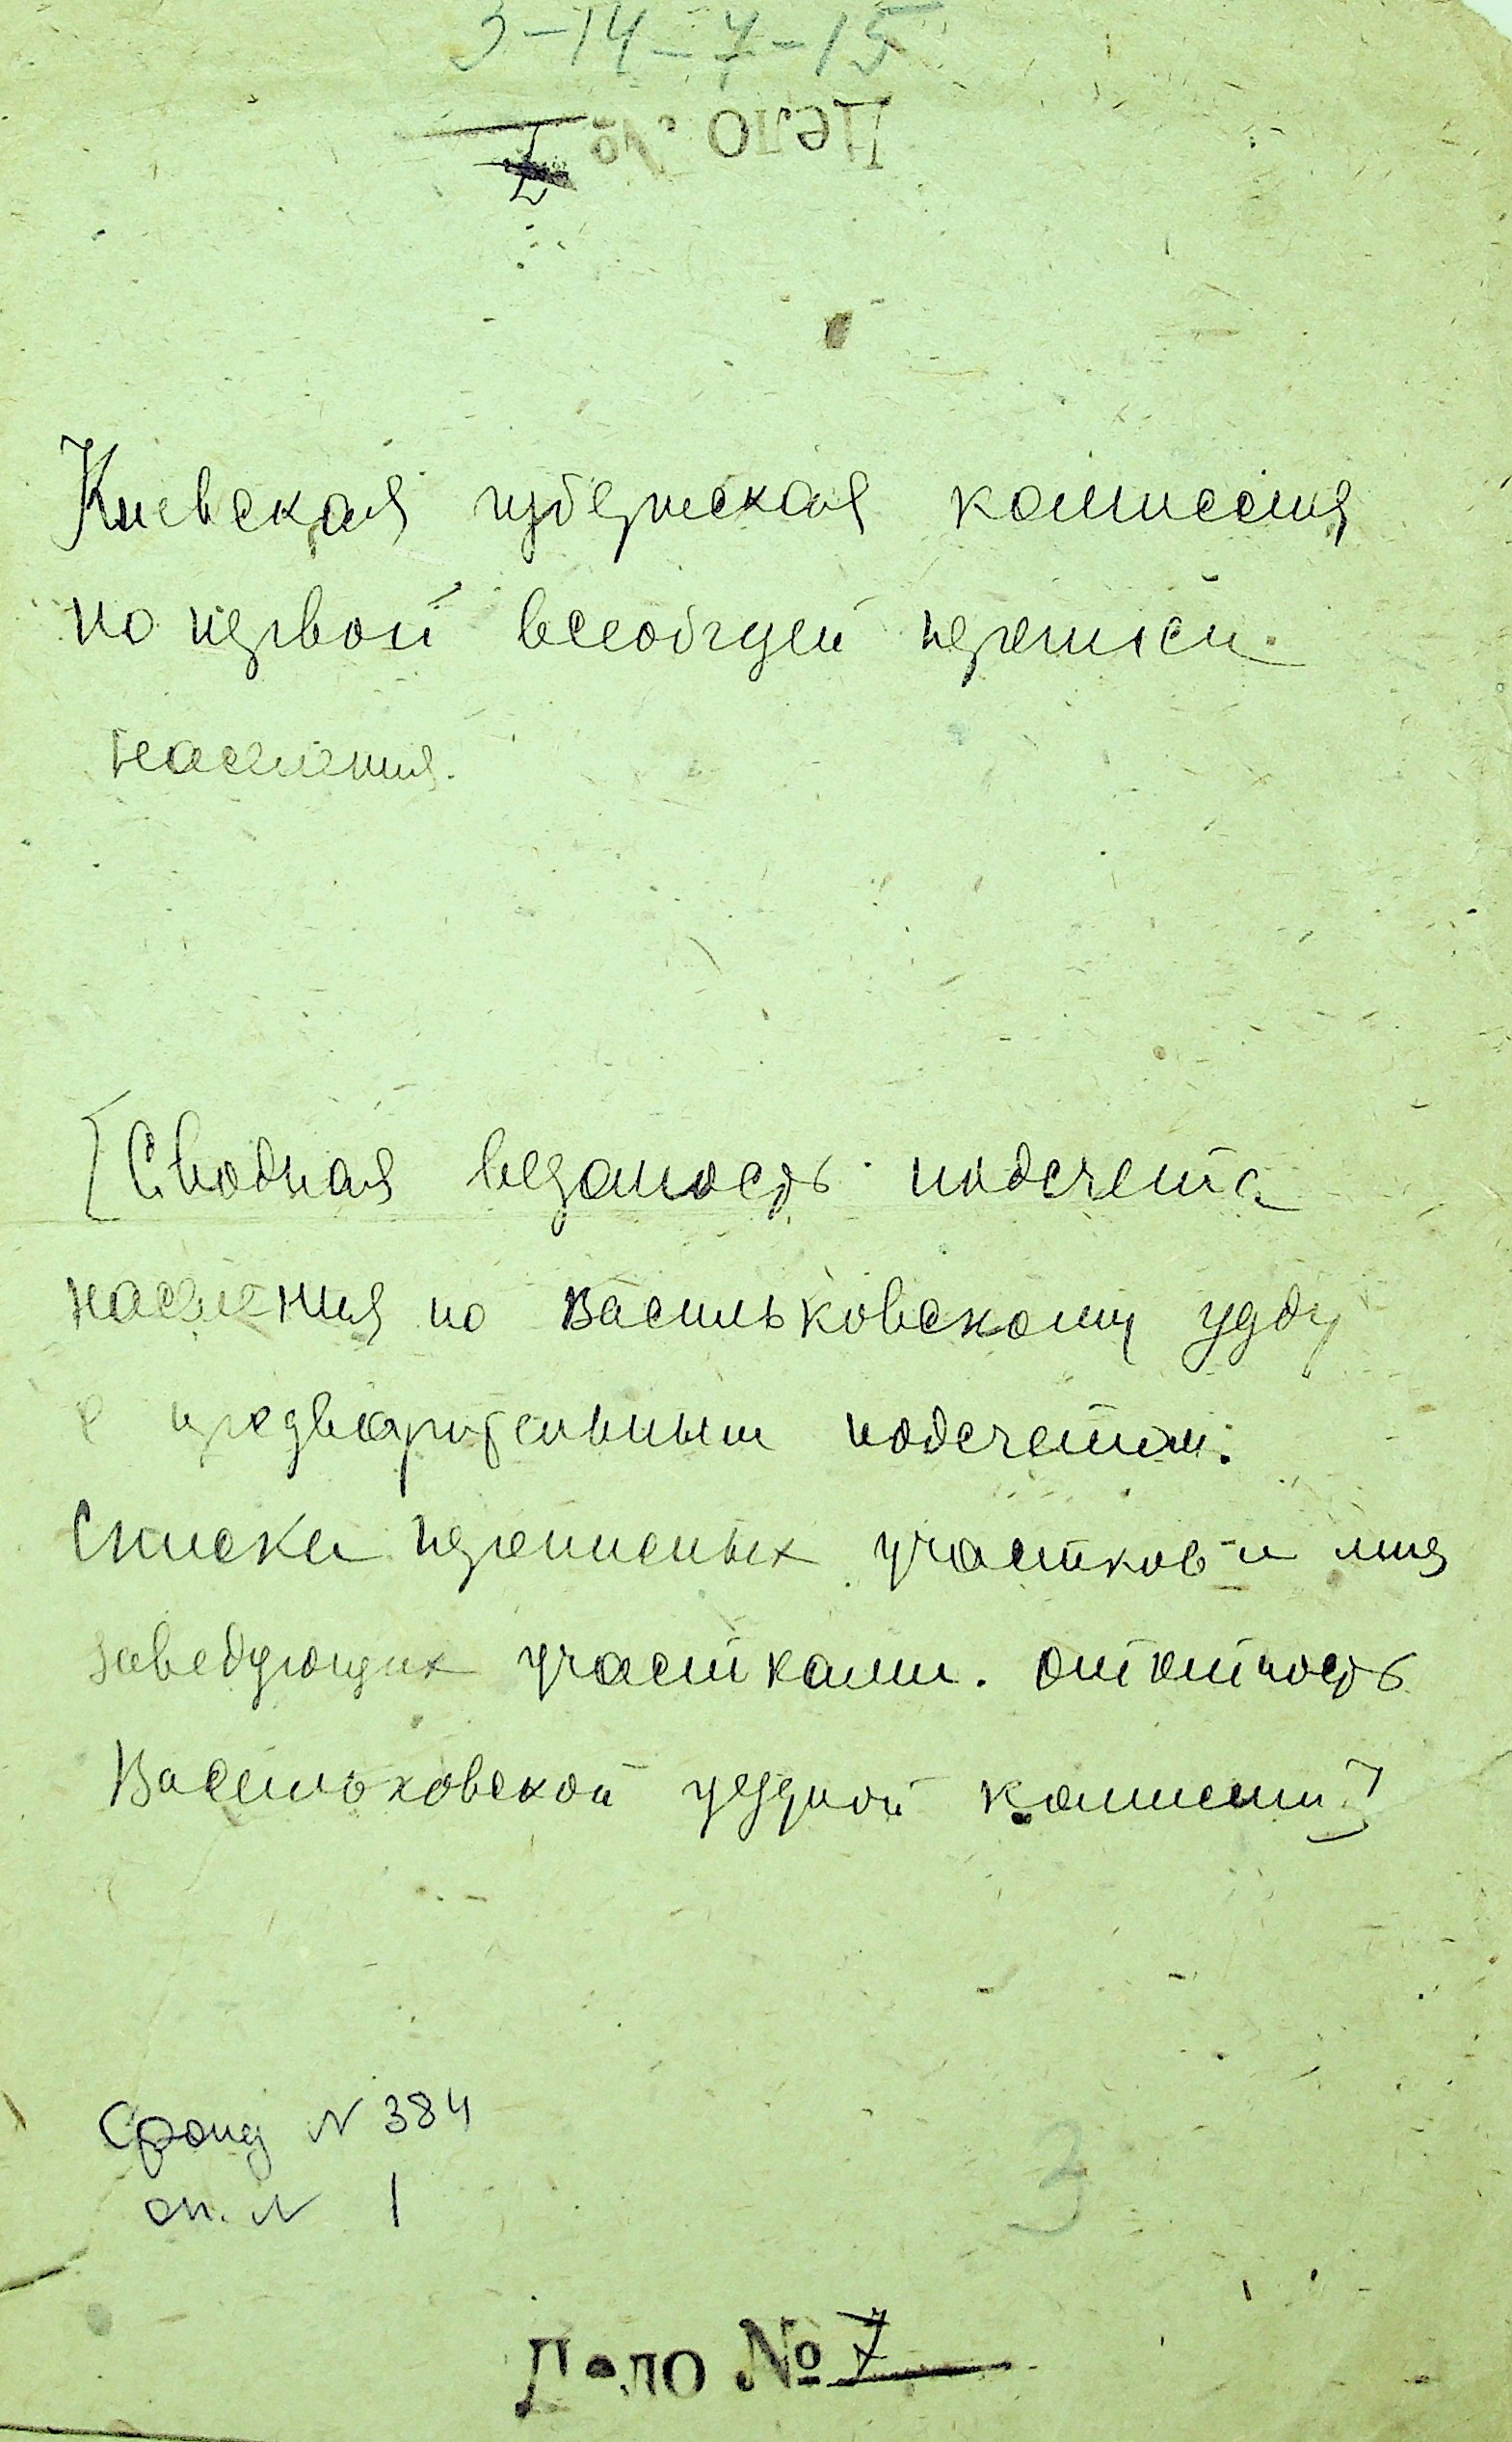 3-14-7-15
Дело №
Киевская губернская комиссия
по первой всеобщей переписи
населения.
[Сводная ведомость подсчета
населения по Васильковскому уезду
с предварительным подсчетом.
Списки переписных участков и лиц
заведующих участками.
Васильковской уездной комиссии]
Фонд N 384
оп. N 1
3
Дело № 7